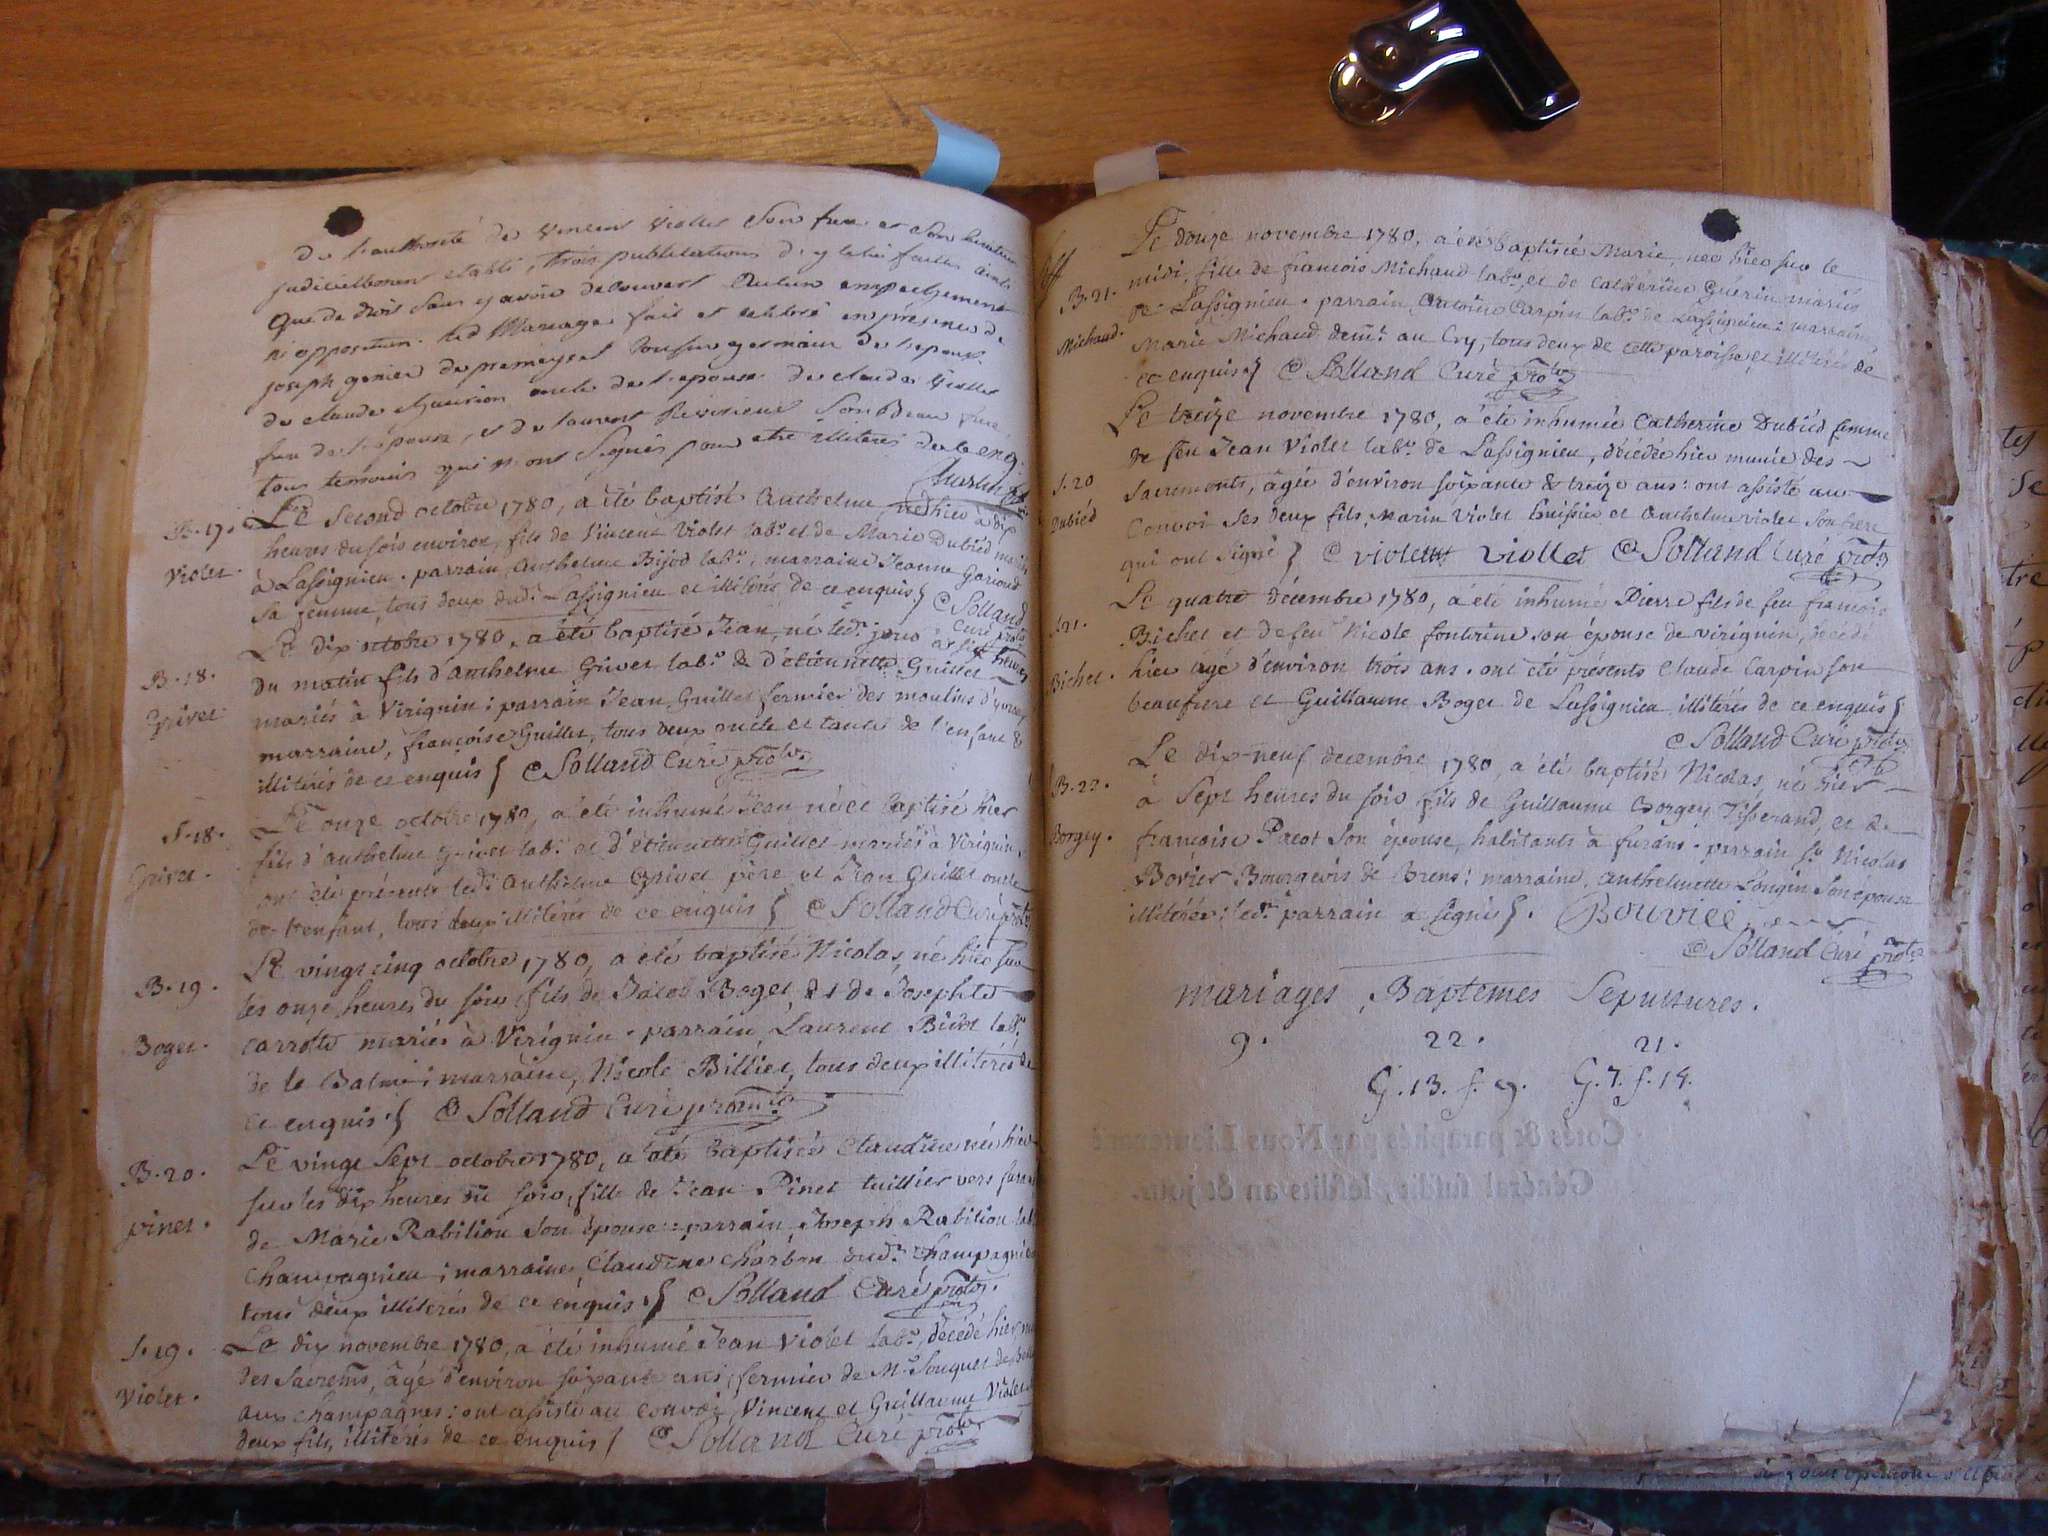 de l'authorité de vincent viollet son frere et son curateur
judiciellement etabli, trois publications d'y celui faittes ainsi
que de droit sans y avoir decouvert aucun empechement
ni opposition. led mariage fait et celebré en présence de
joseph genier de premeyzel cousin germain de l'epoux
de claude oncle de l'epouse de claude viollet
frere de l'épouse, et de laurent son Beau frere
tous temoins qui n'ont signés pour etre illiteres de ce enq.
B. 17. Le second octobre 1780, a été baptisé Anthelme né hier à dix
heures du soir environ, fils de Vincent Violet labr. et de Marie Dubied mariés
Violet. à Lassignieu. parrain, Anthelme Bijod labr.; marraine Jeanne Gorioud
sa femme, tous deux dud. Lassignieu et illitérés de ce enquis Solland
Curé
Le dix octobre 1780, a été baptisé Jean, né led. jour à sept heures
B. 18. du matin fils d'Anthelme Grivet labr. & d'étiennette Guillet
Grivet mariés à Virignin; parrain Jean Guillet fermier des moulins d'
marraine, françoise Guillet, tous deux oncle et tante de l'enfant &
illitérés de ce enquis Solland Curé
S. 18. Le onze octobre 1780, a été inhumé Jean né et baptisé hier
fils d'anthelme Grivet labr. et d'étiennette Guillet mariés à Virignin
Grivet. ont été présents led. Anthelme Grivet père et Jean Guillet oncle
de l'enfant, tous deux illitérés de ce enquis Solland Curé
Le vingt cinq octobre 1780, a été baptisé Nicolas, né hier sur
B. 19. les onze heures du soir fils de Jacob Boget, & de Josephte
Boget. carrotte mariés à Virignin. parrain, Laurent labr.
de la Balme; marraine, Nicole Billiet, tous deux illitérés de
ce enquis Solland Curé
Le vingt sept octobre 1780, a été baptisée Claudine née hier
B. 20. sur les dix heures du soir, fille de Jean Pinet tuillier vers furans
pinet. de Marie Rabilion son épouse: parrain, Joseph Rabilion
Champagnieu; marraine, Claudine Charbon dud. Champagnieu
tous deux illiterés de ce enquis. Solland Curé
S. 19. Le dix novembre 1780, a été inhumé Jean Violet labr., décédé hier,
des Sacremts, âgé d'environ soixante ans, fermier de Mr. Souquet de
Violet. aux champagnes: ont assisté au convoi, Vincent et Guillaume Violet
deux fils, illitérés de ce enquis Solland Curé
Le douze novembre 1780, a été baptisée Marie, née hier sur le
B. 21. midi, fille de francois Michaud labr., et de Catherine Guerin mariés
de Lassignieu. parrain, Antoine Carpin labr. de Lassignieu: marraine
Michaud. Marie Michaud demt. au Cry, tous deux de cette paroisse et illitérés de
ce enquis Solland Curé
Le treize novembre 1780, a été inhumée Catherine Dubied femme
de feu Jean Violet labr. de Lassignieu, décédée hier munie des
S. 20 Sacrements, âgée d'environ soixante & treize ans: ont assisté au
Dubied Convoi ses deux fils, Marin Violet huissier et Anthelme violet son frere
qui ont signé violett viollet Solland Curé
Le quatre décembre 1780, a été inhumé Pierre fils de feu francois
S. 21. Bichet et de feu Nicole fontaine son épouse de virignin, décédé
Bichet. hier âgé d'environ trois ans. ont été présents Claude Carpin son
beaufrere et Guillaume Boget de Lassignieu illitérés de ce enquis
Solland Curé
Le dix-neuf decembre 1780, a été baptisé Nicolas, né hier
B. 22. à Sept heures du soir fils de Guillaume Borgey Tisserand, et de
Borgey. françoise Pacot son épouse, habitants à furans. parrain sr. Nicolas
Bovier Bourgeois de Brens: marraine, Anthelmette Longin son épouse
illitérée; led. parrain a signé. Bouvier
Solland Curé
mariages Baptemes Sepultures.
9. 22. 21.
G. 13. f. 9. G. 7. f. 14.